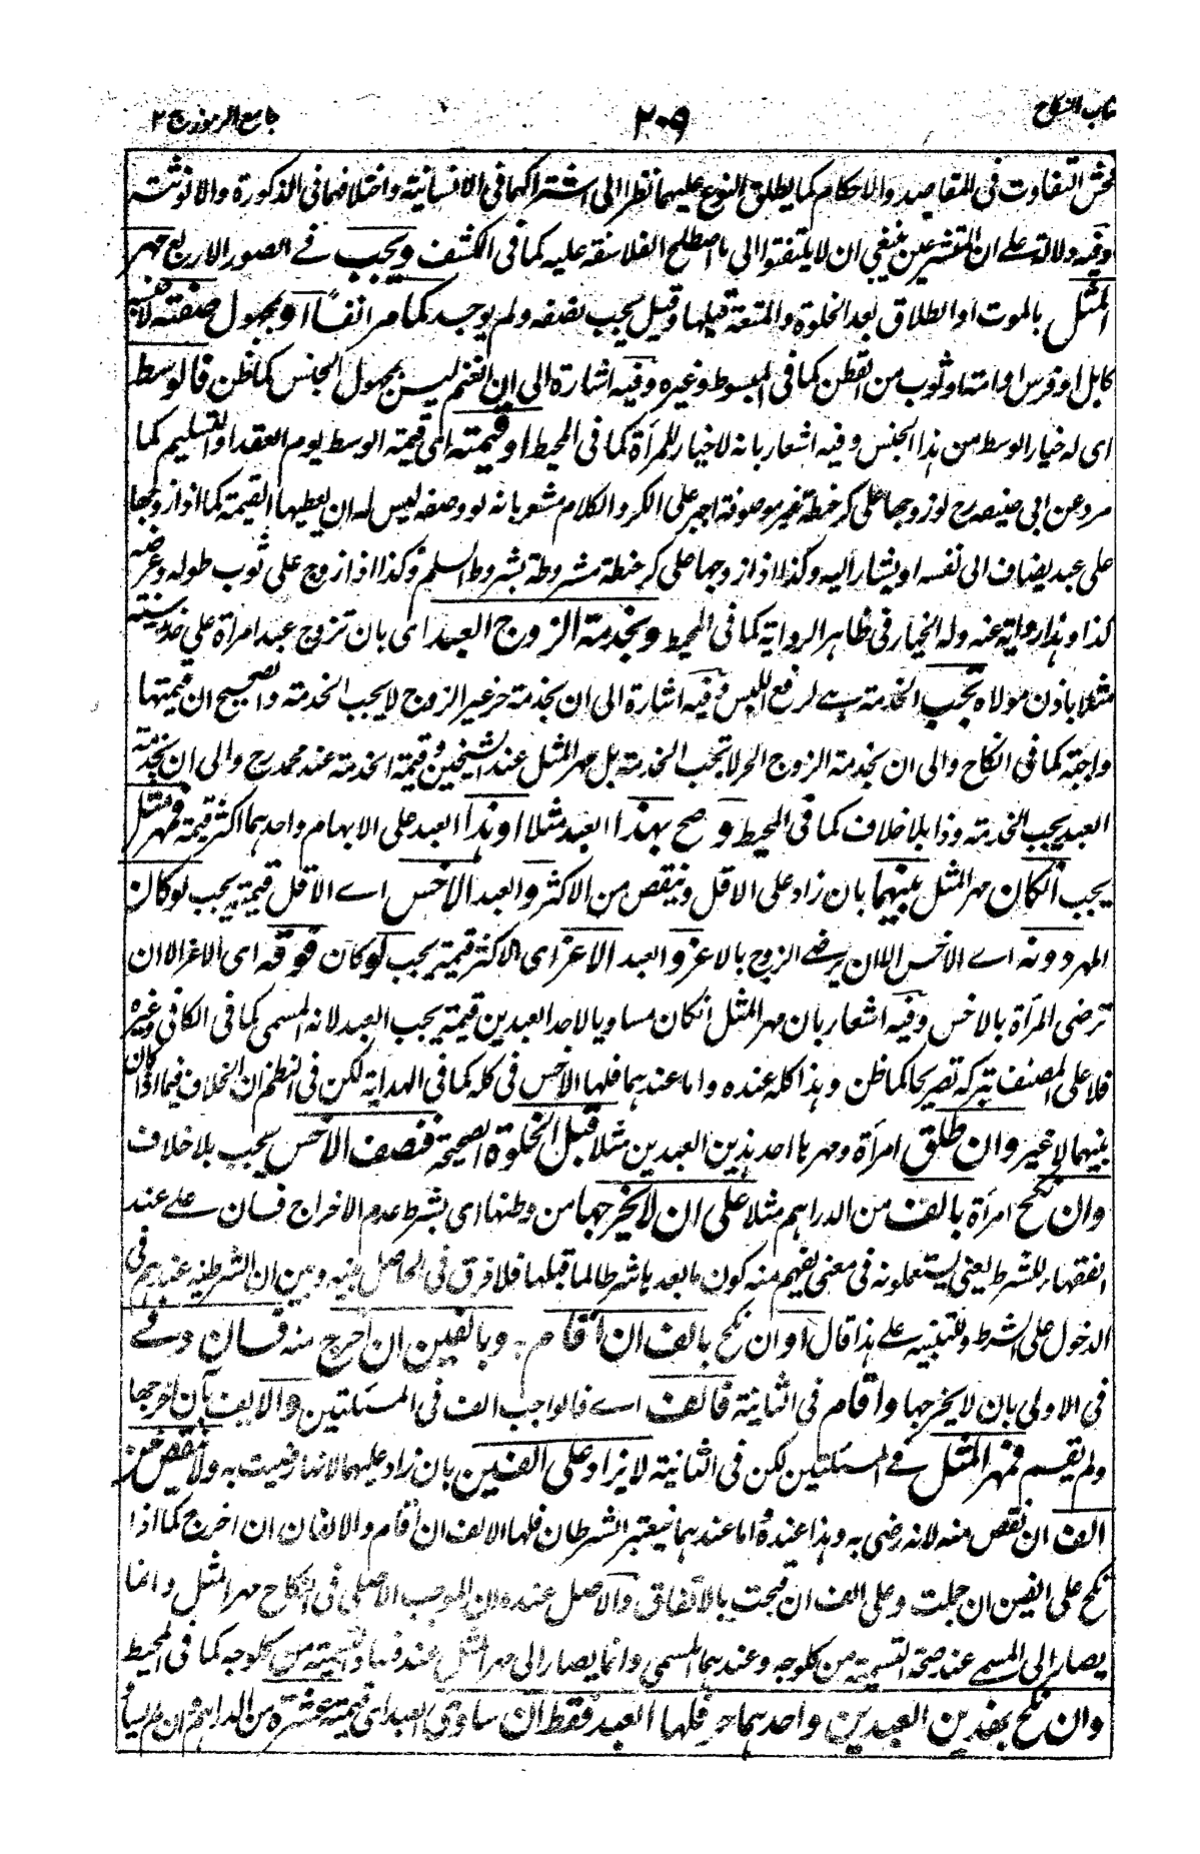 كتاب النكاح ٢٠٩ جامع الرموز ج ٢
فحش التفاوت فى المقاصد والاحكام كما يطلق النوع عليهما نظرا الى اشتراكهما فى الانسانية واختلافهما فى الذكورة والانوثة
وفيه دلالة على ان المتشرعين ينبغى ان لا يلتفتوا الى ما اصطلح الفلاسفة عليه كما فى الكشف ويجب فے الصور الاربع مهر
المثل بالموت او الطلاق بعد الخلوة والمتعة قبلها وقيل يجب نصفه ولم يوجد كما مر انفا او بمجهول صفته لا جنسه
كابل او فرس او امة او ثوب من القطن كما فى المبسوط وغيره وفيه اشارة الى ان الغنم ليس بمجهول الجنس كما ظن فالوسط
اى له خيار الوسط من هذا الجنس وفيه اشعار بانه لا خيار للمرأة كما فى المحيط او قيمته اى قيمة الوسط يوم العقد او التسليم كما
مر وعن ابى حنيفة رح لو زوجها على كر حنطة غير موصوفة اجبر على الكر والكلام مشعر بانه لو وصفه ليس له ان يعطيها القيمة كما اذا زوجها
على عبد يضاف الى نفسه او يشار اليه وكذا اذا زوجها على كر حنطة مشروطة بشروط السلم وكذا اذا زوج على ثوب طوله وعرضه
كذا وهذا رواية عنه وله الخيار فى ظاهر الرواية كما فى المحيط وبخدمة الزوج العبد اى بان تزوج عبد امرأة على خدمة سنة
مثلا باذن مولاه تجب الخدمة هے لرفع اللبس وفيه اشارة الى ان بخدمة حر غير الزوج لا يجب الخدمة والصحيح ان قيمتها
واجبة كما فى النكاح والى ان بخدمة الزوج الحر لا تجب الخدمة بل مهر المثل عند الشيخين وقيمة الخدمة عند محمد رح والى ان بخدمة
العبد يجب الخدمة وذا بلا خلاف كما فى المحيط وصح بهذا العبد مثلا او بهذا العبد على الابهام واحدهما اكثر قيمة فمهر المثل
يجب ان كان مهر المثل بينهما بان زاد على الاقل وينقص من الاكثر والعبد الاخس اے الاقل قيمة يجب لو كان
المهر دونه اے الاخس الا ان يرضے الزوج بالاعز والعبد الاعز اى الاكثر قيمة يجب لو كان فوقه اى الاعز الا ان
ترضى المرأة بالاخس وفيه اشعار بان مهر المثل ان كان مساويا لاحد العبدين قيمة يجب العبد لانه المسمى كما فى الكافى وغيره
فلا على المصنف بتركه تصريحا كما ظن وهذا كله عنده واما عندهما فلها الاخس فى كله كما فى الهداية لكن فى النظم ان الخلاف فيما اذا كان
بينهما لا غير وان طلق امرأة ومهرها احد هذين العبدين مثلا قبل الخلوة الصحيحة فنصف الاخس يجب بلا خلاف
وان نكح امرأة بالف من الدراهم مثلا على ان لا يخرجها من وطنها اى بشرط عدم الاخراج فان علے عند
الفقهاء للشرط يعنى يستعملونه فى معنى يفهم منه كون ما بعدها شرطا لما قبلها فلا فرق فى الحاصل بينه وبين ان الشرطية عندهم فى
الدخول على الشرط وللتنبيه علے هذا قال او ان نكح بالف ان اقام بها وبالفين ان اخرج منه فان وفے
فى الاولى بان لا يخرجها واقام فى الثانية فالف اے فالواجب الف فى المسئلتين والا يف بان اخرجها
ولم يقسم فمهر المثل فے المسئلتين لكن فى الثانية لا يزاد على الفين بان زاد عليهما لانها رضيت به ولا ينقص عن
الف ان نقص منه لانه رضى به وهذا عنده اما عندهما فيعتبر الشرطان فلها الالف ان اقام والالفان ان اخرج كما اذا
نكح على الفين ان جملت وعلى الف ان قبحت بالاتفاق والاصل عنده ان الموجب الاصلى فى النكاح مهر المثل وانما
يصار الى المسمے عند صحة التسمية من كل وجه وعندهما المسمى وانما يصار الى مهر المثل عند فساد التسمية من كل وجه كما فى المحيط
وان نكح بهذين العبدين واحدهما حر فلها العبد فقط ان ساوى العبد اى قيمته عشرة من الدراهم وان لم يساو